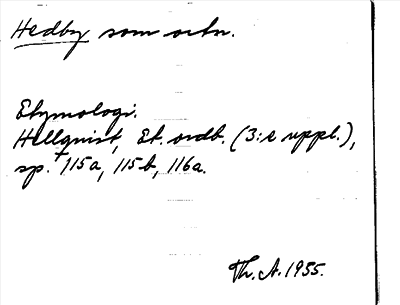 Hedby som ortn.
Etymologi.
Hellquist, Et. ordb. (3:e uppl.),
sp. 115a, 115b, 116a.
Th. A. 1955.